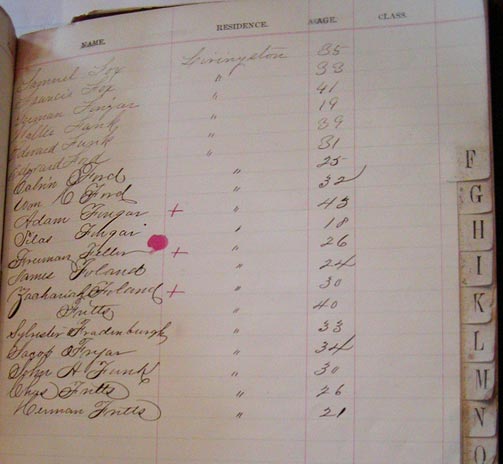 NAME. RESIDENCE. AGE. CLASS.
Samuel Fox Livingston 35
Francis Fox " 33
Herman Fingar " 41
Wallis Funk " 19
Edward Funk " 39
Edward Ford " 31
Calvin Ford " 25
Wm C Ford " 32
Adam Fingar + " 43
Silas Fingar " 18
Freeman Feller + " 26
James Foland " 24
Zachariah Foland + " 30
Fritts " 40
Sylvester Fradenburgh " 33
Jacob Fryar " 34
John H Funk " 30
Chas Fritts " 26
Herman Fritts " 21
F
G
H
I
K
L
M
N
O